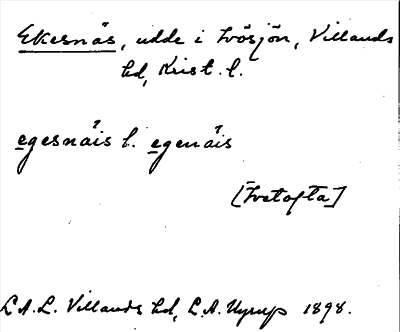 Ekesnäs, udde i Ivösjön, Villands
hd, Krist. l.
egesnäis l. egenäis
[Ivetofta]
L.A.L. Villands hd, L.A. Nyrup 1898.